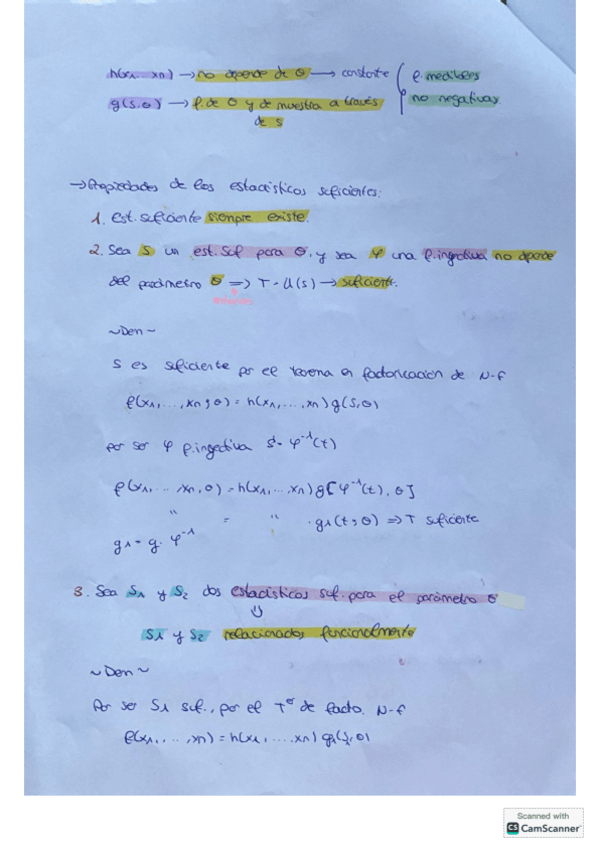 h(x1, ..., xn) → no depende de θ → constante { f. medibles
g(s,θ) → f. de θ y de muestra a través de s } no negativas.
→ Propiedades de los estadísticos suficientes:
1. Est. suficiente siempre existe.
2. Sea S un est. suf para θ, y sea φ una f. inyectiva no depende
del parámetro θ => T = U(s) → suficiente.
~Dem~
S es suficiente por el teorema en factorización de N-F
f(x1, ..., xn; θ) = h(x1, ..., xn) g(S,θ)
por ser φ f. inyectiva S = φ⁻¹(t)
f(x1, ..., xn, θ) = h(x1, ..., xn) g[φ⁻¹(t), θ]
" = " · g1(t; θ) => T suficiente
g1 = g · φ⁻¹
3. Sea S1 y S2 dos estadísticos suf. para el parámetro θ
S1 y S2 relacionados funcionalmente
~Dem~
Por ser S1 suf., por el Tª de facto. N-F
f(x1, ..., xn) = h(x1, ..., xn)
Scanned with
CS CamScanner